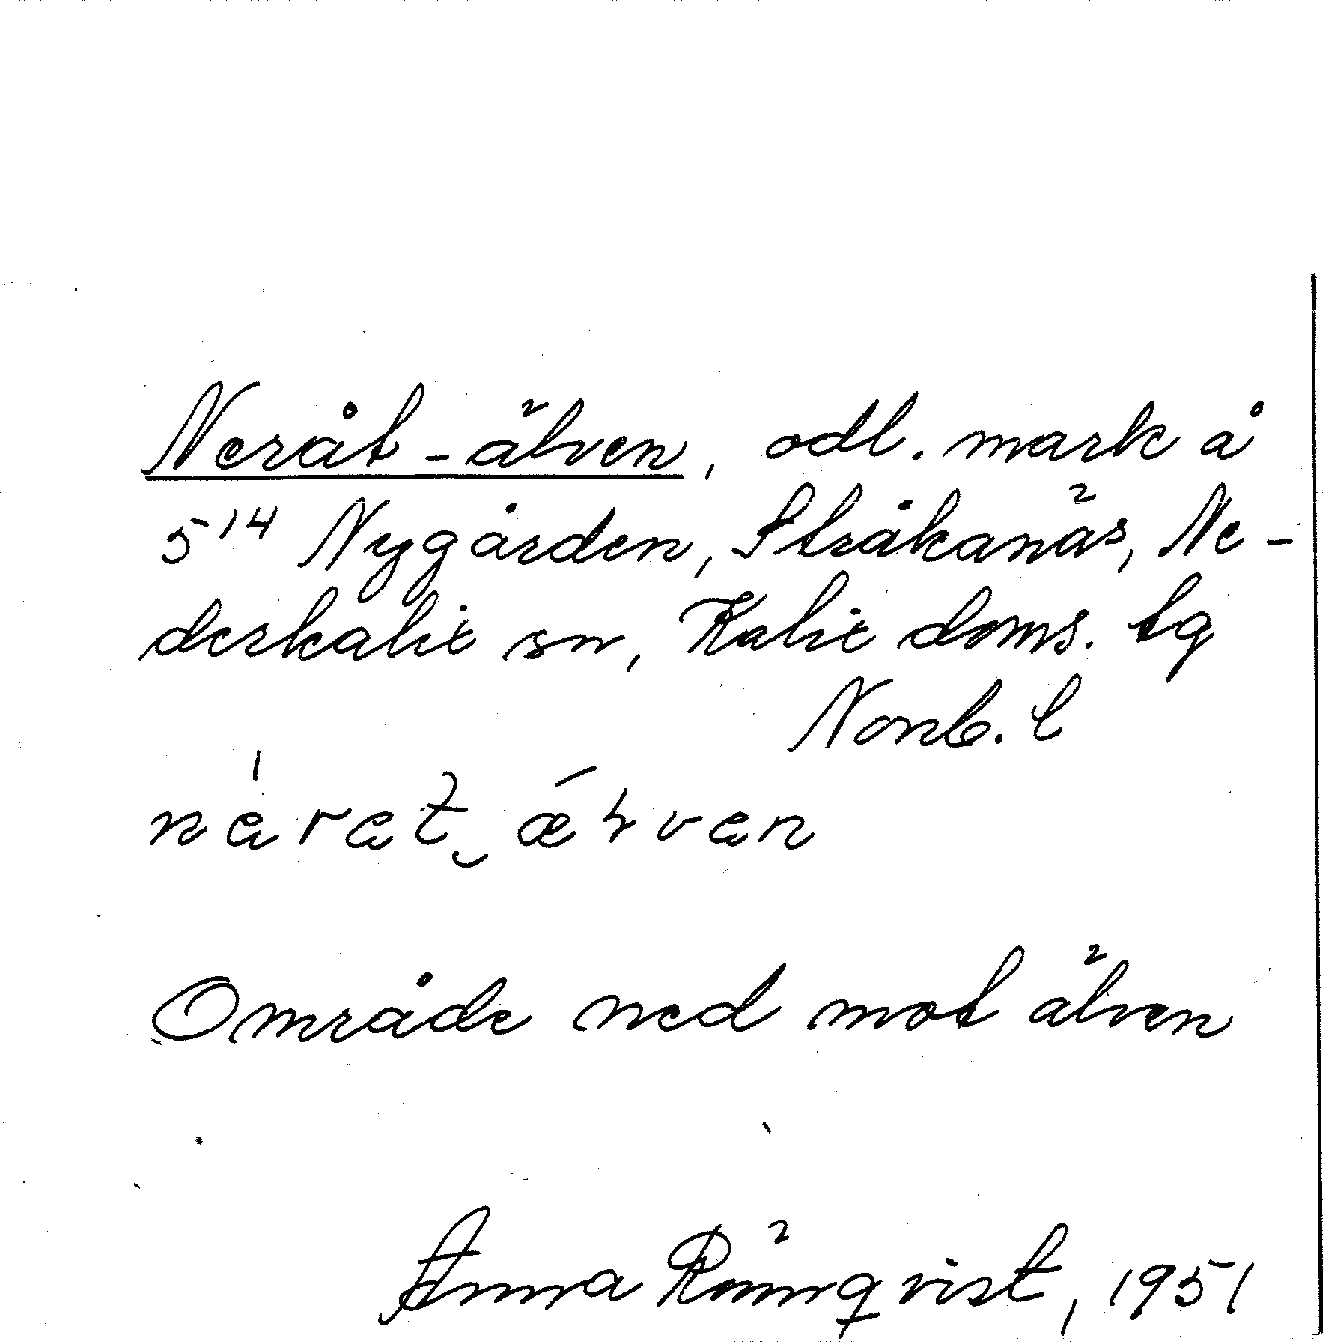 Neråt-älven, odl. mark å
5¹⁴ Nygården, Stråkanäs, Ne-
derkalix sn, Kalix doms. tg
Norrb. l
Område ned mot älven
Anna Rönnqvist, 1951